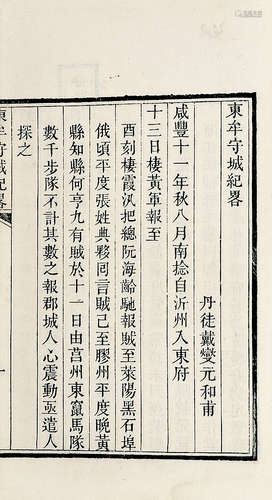 東牟守城紀畧
丹徒戴燮元和甫
咸豐十一年秋八月南捻自沂州入東府
十三日棲黃軍報至
酉刻棲霞汛把總阮海齡馳報賊至萊陽黑石埠
俄頃平度張姓典夥同言賊已至膠州平度晚黃
縣知縣何亨九有賊於十一日由莒州東竄馬隊
數千步隊不計其數之報郡城人心震動亟遣人
探之
東牟守城紀畧
一